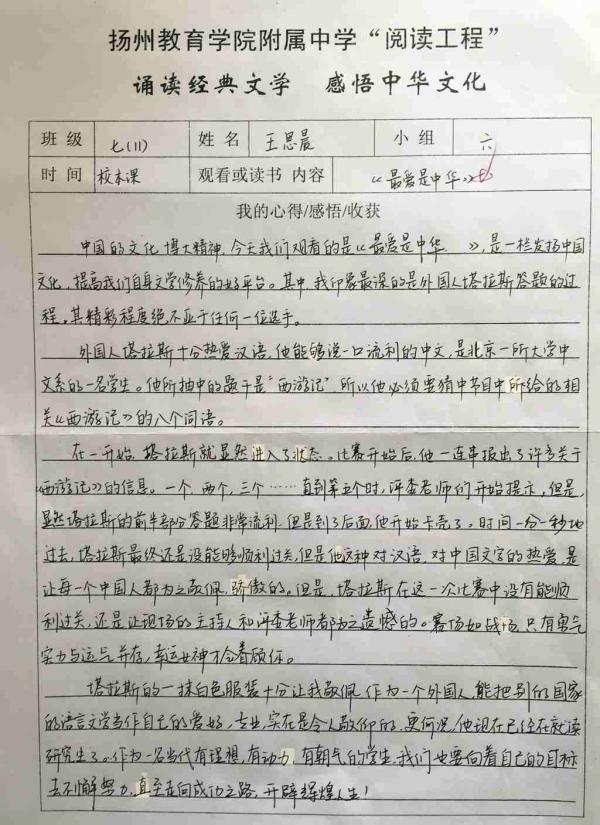 扬州教育学院附属中学“阅读工程”
诵读经典文学 感悟中华文化
班级 七(11) 姓名 王思晨 小组 六
时间 校本课 观看或读书 内容 《最爱是中华》
我的心得/感悟/收获
中国的文化博大精神,今天我们观看的是《最爱是中华 》,是一栏发扬中国
文化,提高我们自身文学修养的好平台。其中,我印象最深的是外国人塔拉斯答题的过
程,其精彩程度绝不亚于任何一位选手。
外国人塔拉斯十分热爱汉语,他能够说一口流利的中文,是北京一所大学中
文系的一名学生。他所抽中的题于是“西游记”,所以他必须要猜中节目中所给的相
关《西游记》的八个词语。
在一开始,塔拉斯就显然进入了状态。比赛开始后,他一连串报出了许多关于
《西游记》的信息。一个,两个,三个……直到第五个时,评委老师们开始提示,但是,
显然塔拉斯的前半部分答题非常流利,但是到了后面,他开始卡壳了。时间一分一秒地
过去,塔拉斯最终还是没能够顺利过关,但是他这种对汉语,对中国文字的热爱,是
让每一个中国人都为之敬佩,骄傲的。但是,塔拉斯在这一次比赛中没有能顺
利过关,还是让现场的主持人和评委老师都为之遗憾的。赛场如战场,只有勇气
实力与运气并存,幸运女神才会着顾你。
塔拉斯的一抹白色服装十分让我敬佩,作为一个外国人,能把别的国家
的语言文学当作自己的爱好,专业,实在是令人敬仰的,更何况,他现在已经在就读
研究生了。作为一名当代有理想,有动力,有朝气的学生,我们也要向着自己的目标
去不懈努力,直至走向成功之路,开辟辉煌人生!